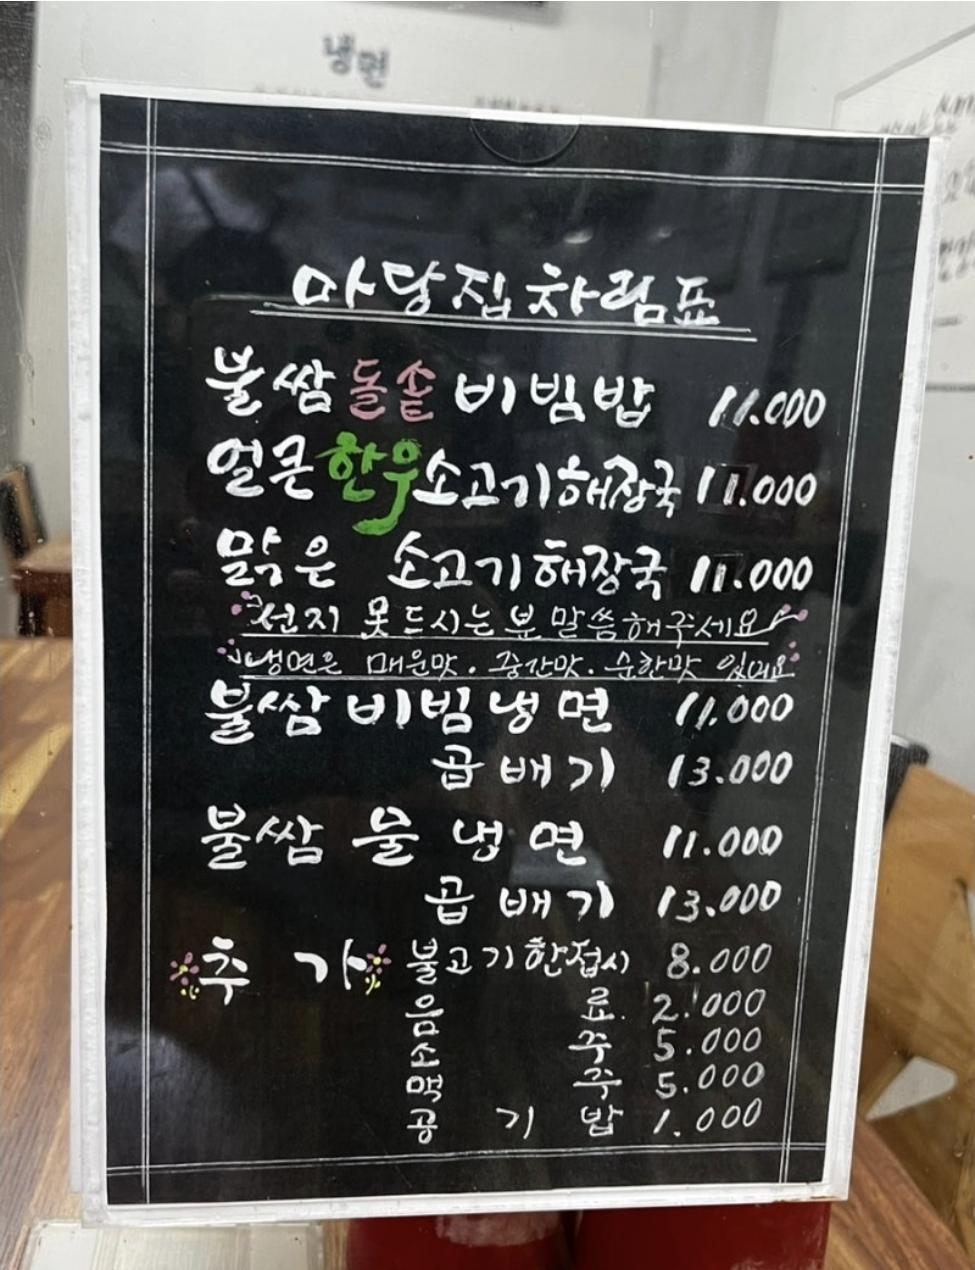 냉면
마당집차림표
불쌈돌솥비빔밥 11.000
얼큰한우소고기해장국 11.000
맑은 소고기해장국 11.000
선지 못드시는분 말씀해주세요
냉면은 매운맛. 중간맛. 순한맛 있어요
불쌈비빔냉면 11.000
곱배기 13.000
불쌈 물냉면 11.000
곱배기 13.000
추가 불고기한접시 8.000
음료. 2.000
소주 5.000
맥주 5.000
공기밥 1.000